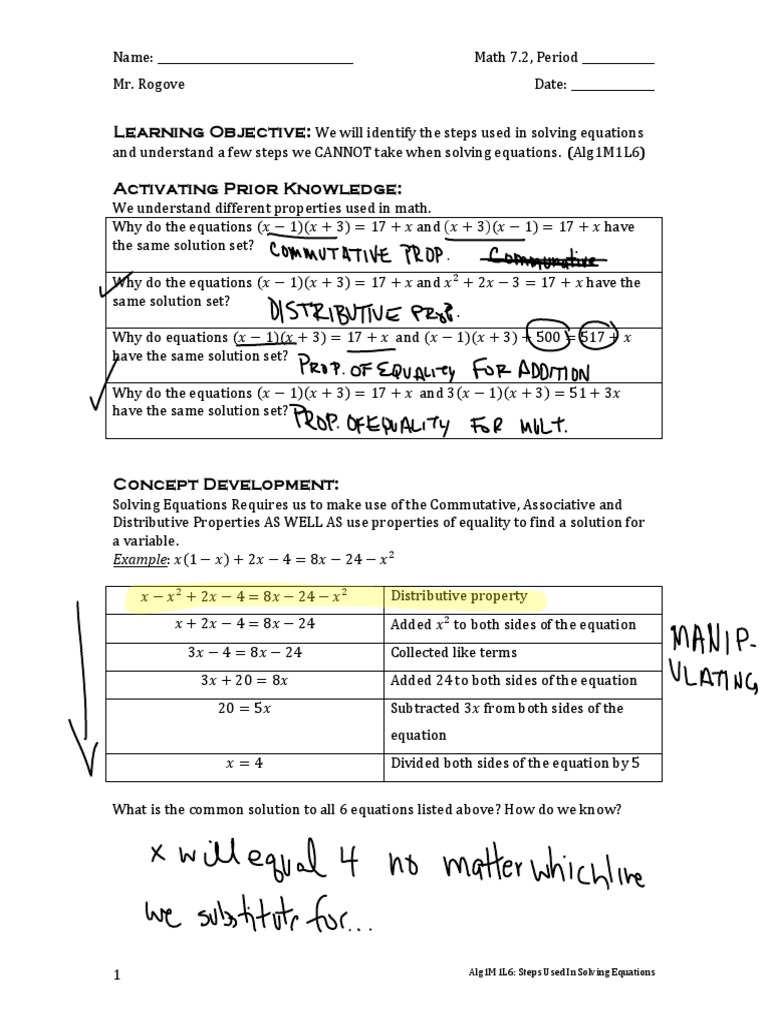 Name: ____________________ Math 7.2, Period ________
Mr. Rogove Date: _________
Learning Objective: We will identify the steps used in solving equations
and understand a few steps we CANNOT take when solving equations. (Alg1M1L6)
Activating Prior Knowledge:
We understand different properties used in math.
Why do the equations (x − 1)(x + 3) = 17 + x and (x + 3)(x − 1) = 17 + x have
the same solution set? COMMUTATIVE PROP.
Why do the equations (x − 1)(x + 3) = 17 + x and x² + 2x − 3 = 17 + x have the
same solution set? DISTRIBUTIVE PROP.
Why do equations (x − 1)(x + 3) = 17 + x and (x − 1)(x + 3) + 500 = 517 + x
have the same solution set? PROP. OF EQUALITY FOR ADDITION
Why do the equations (x − 1)(x + 3) = 17 + x and 3(x − 1)(x + 3) = 51 + 3x
have the same solution set? PROP. OF EQUALITY FOR MULT.
Concept Development:
Solving Equations Requires us to make use of the Commutative, Associative and
Distributive Properties AS WELL AS use properties of equality to find a solution for
a variable.
Example: x(1 − x) + 2x − 4 = 8x − 24 − x²
x − x² + 2x − 4 = 8x − 24 − x² Distributive property
x + 2x − 4 = 8x − 24 Added x² to both sides of the equation
3x − 4 = 8x − 24 Collected like terms
3x + 20 = 8x Added 24 to both sides of the equation
20 = 5x Subtracted 3x from both sides of the
equation
x = 4 Divided both sides of the equation by 5
MANIP-
ULATING
What is the common solution to all 6 equations listed above? How do we know?
x will equal 4 no matter which line
we substitute for...
1 Alg1M1L6: Steps Used In Solving Equations